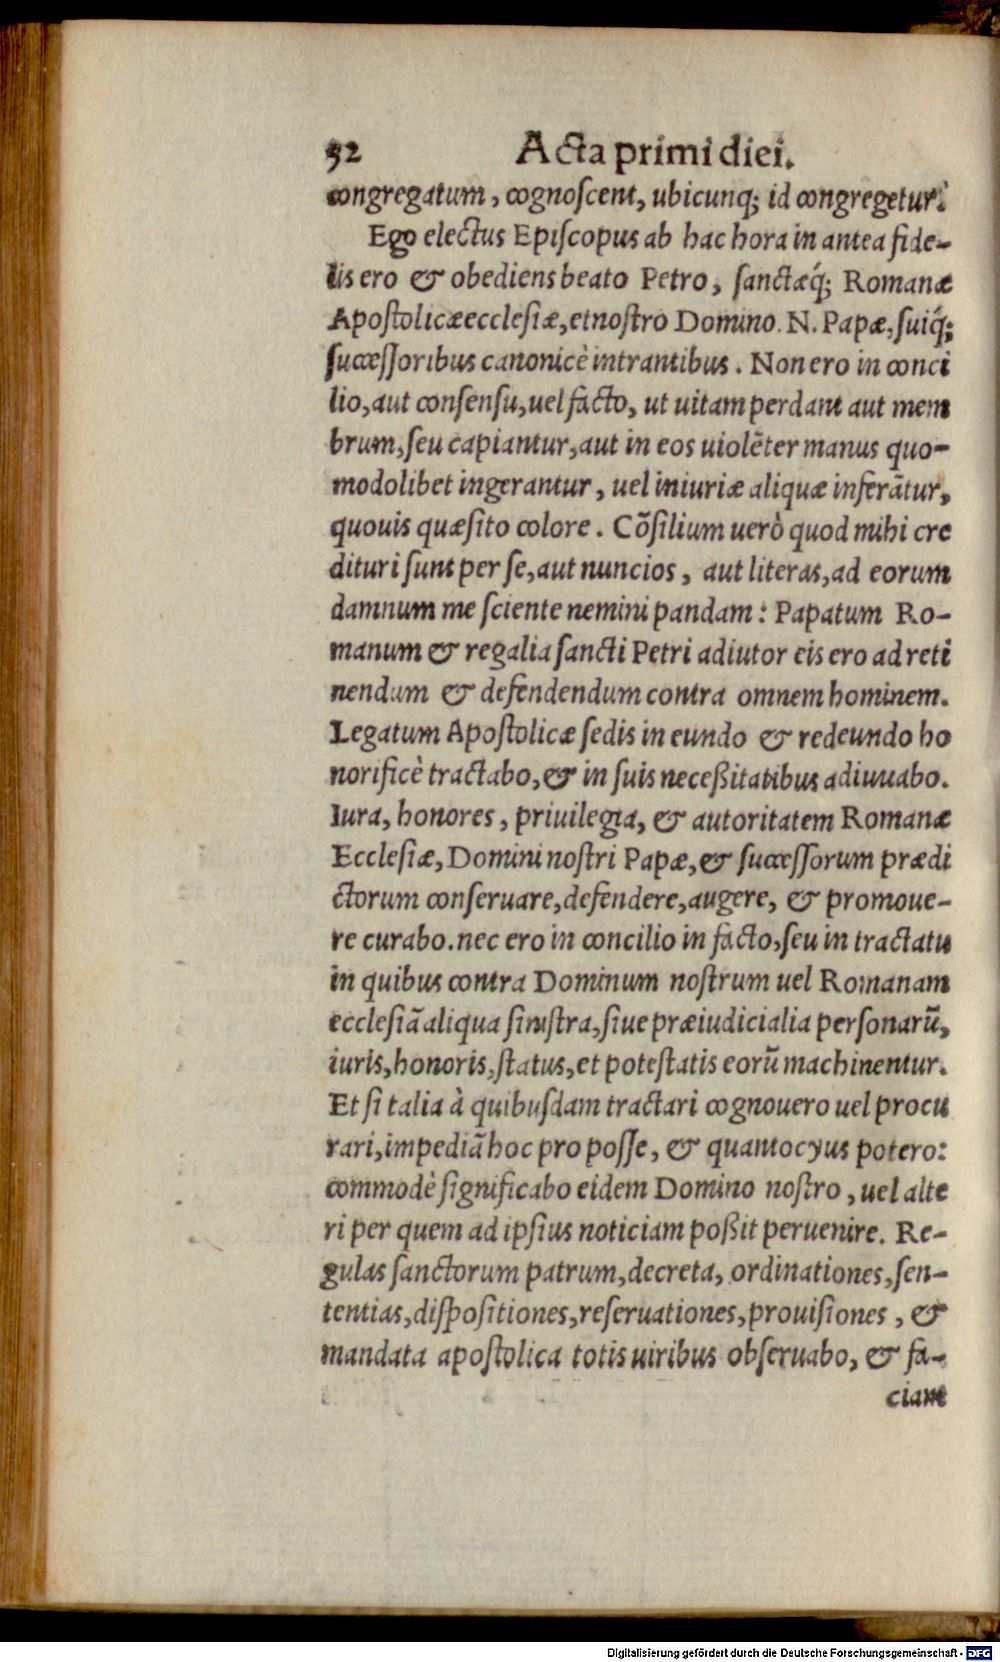 52 Acta primi diei.
congregatum, cognoscent, ubicunq; id congregetur.
Ego electus Episcopus ab hac hora in antea fide-
lis ero & obediens beato Petro, sanctæq́; Romanæ
Apostolicæ ecclesiæ, et nostro Domino. N. Papæ, suiq́;
successoribus canonicè intrantibus. Non ero in conci
lio, aut consensu, uel facto, ut uitam perdant aut mem
brum, seu capiantur, aut in eos uiolēter manus quo-
modolibet ingerantur, uel iniuriæ aliquæ inferātur,
quouis quæsito colore. Cōsilium uerò quod mihi cre
dituri sunt per se, aut nuncios, aut literas, ad eorum
damnum me sciente nemini pandam: Papatum Ro-
manum & regalia sancti Petri adiutor eis ero ad reti
nendum & defendendum contra omnem hominem.
Legatum Apostolicæ sedis in eundo & redeundo ho
norificè tractabo, & in suis neceßitatibus adiuuabo.
Iura, honores, priuilegia, & autoritatem Romanæ
Ecclesiæ, Domini nostri Papæ, & successorum prædi
ctorum conseruare, defendere, augere, & promoue-
re curabo. nec ero in concilio in facto, seu in tractatu
in quibus contra Dominum nostrum uel Romanam
ecclesiā aliqua sinistra, siue præiudicialia personarū,
iuris, honoris, status, et potestatis eorū machinentur.
Et si talia à quibusdam tractari cognouero uel procu
rari, impediā hoc pro posse, & quantocyus potero:
commodè significabo eidem Domino nostro, uel alte
ri per quem ad ipsius noticiam poßit peruenire. Re-
gulas sanctorum patrum, decreta, ordinationes, sen-
tentias, dispositiones, reseruationes, prouisiones, &
mandata apostolica totis uiribus obseruabo, & fa-
ciam
Digitalisierung gefördert durch die Deutsche Forschungsgemeinschaft - DFG